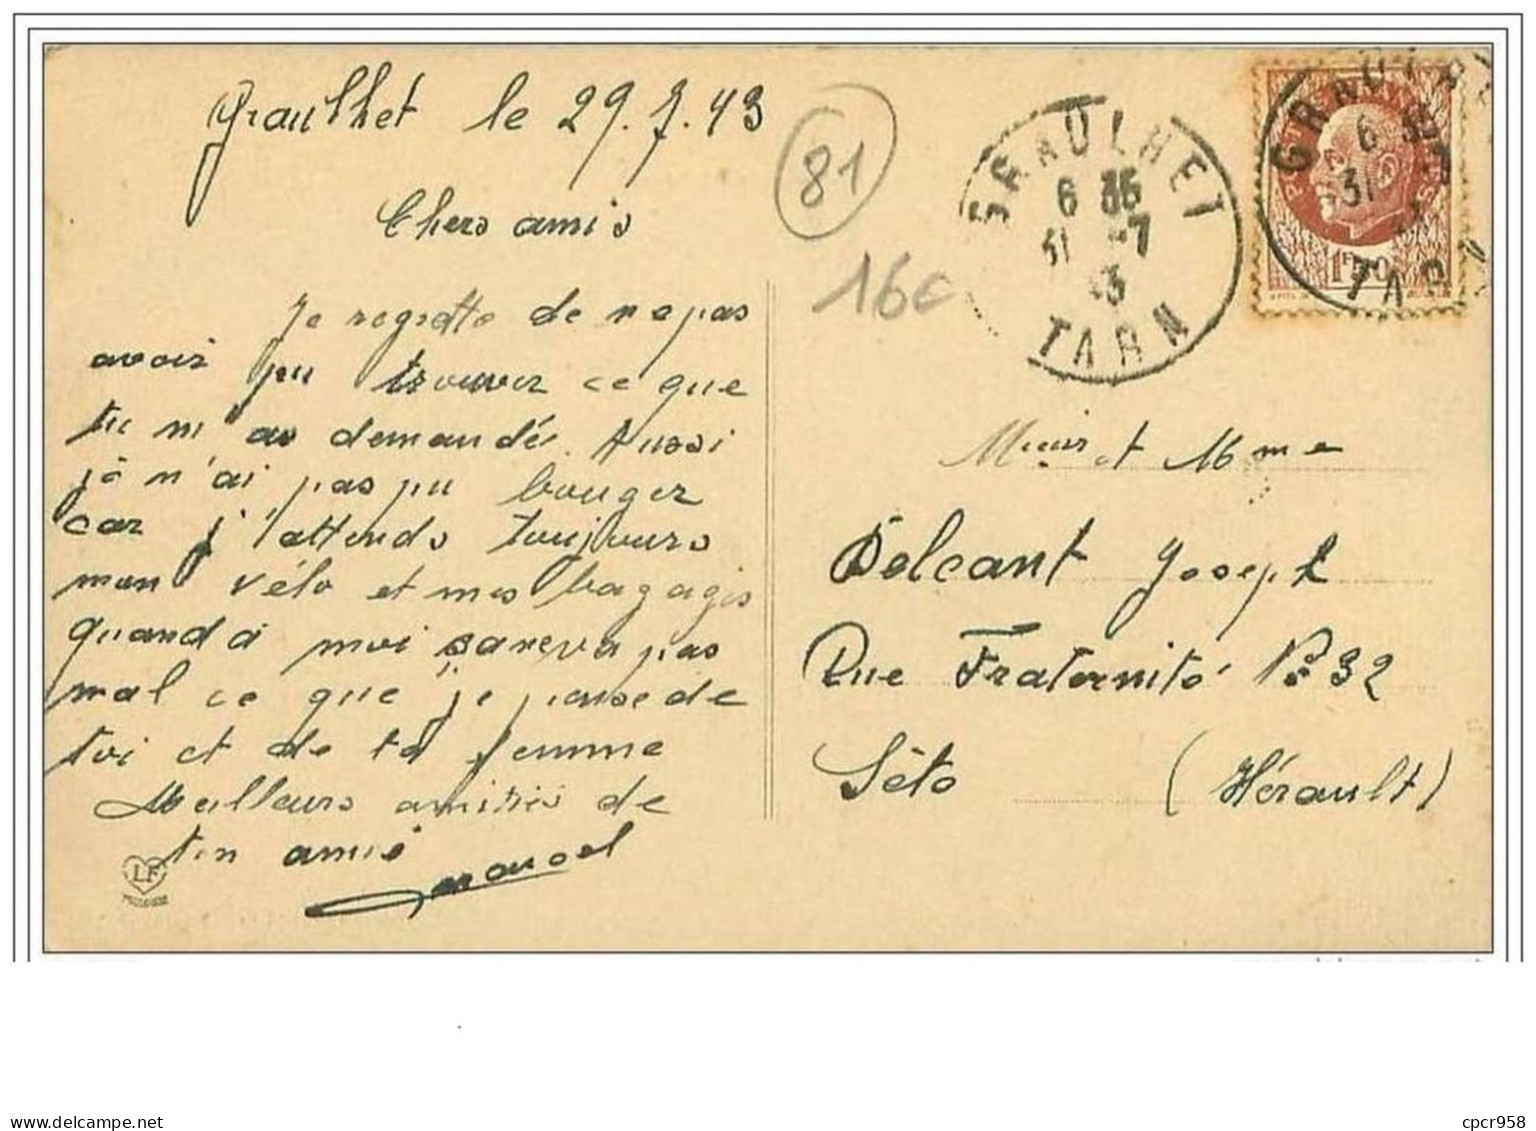 Graulhet le 29.7.43
Chers amis
Je regrette de ne pas
avoir pu trouver ce que
tu m'as demandé. Aussi
je n'ai pas pu bouger
car j'attends toujours
mon vélo et mes bagages
quand à moi sa ne va pas
mal ce que je pense de
toi et de ta femme
Meilleurs amitiés de
ton ami
Marcel
LF
TOULOUSE
81
16c
GRAULHET
6 35
31 -7
43
TARN
GRAULHET
6 35
31
TARN
1F50
et Mme
Delcant Joseph
Rue Fraternité No 32
Sète (Hérault)
cpcr958